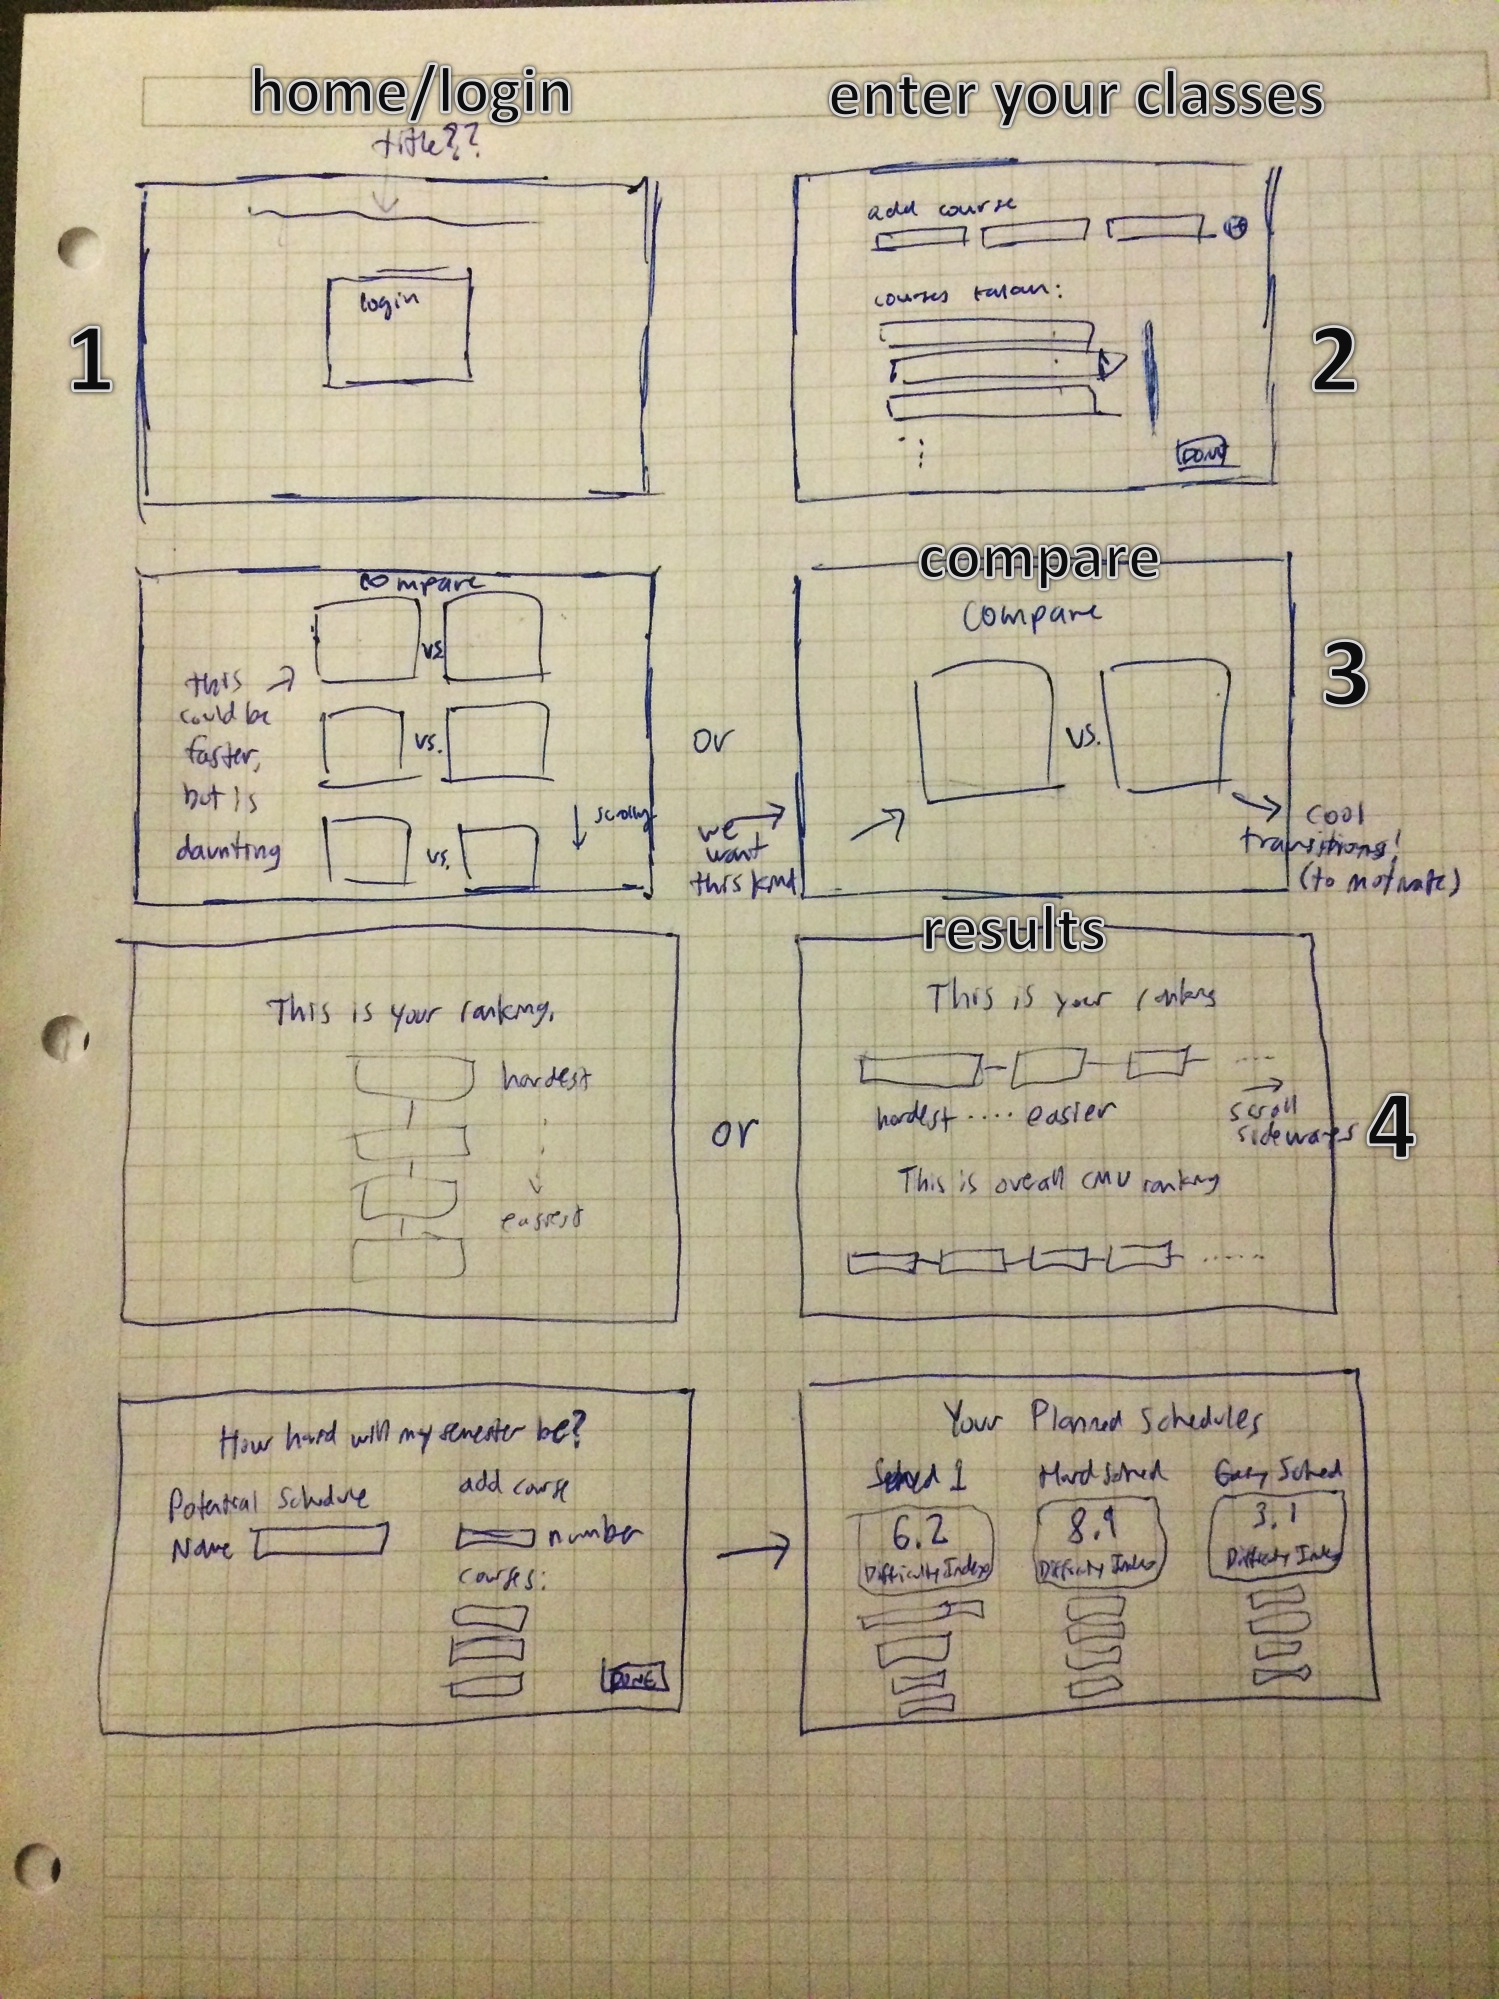 home/login
enter your classes
title??
login
1
add course
courses taken:
DONE
2
compare
vs
vs.
vs.
this
could be
faster,
but is
daunting
scrolly
or
we
want
this kind
compare
Compare
vs.
3
cool
transitions!
(to motivate)
This is your ranking.
hardest
easiest
or
results
This is your ranking
hardest .... easier
scroll
sideways
4
This is overall CMU ranking
How hard will my semester be?
Potential Schedule
Name
add course
number
courses:
DONE
Your Planned Schedules
Sched 1
Hard Sched
Easy Sched
6.2
8.9
3.1
Difficulty Index
Difficulty Index
Difficulty Index